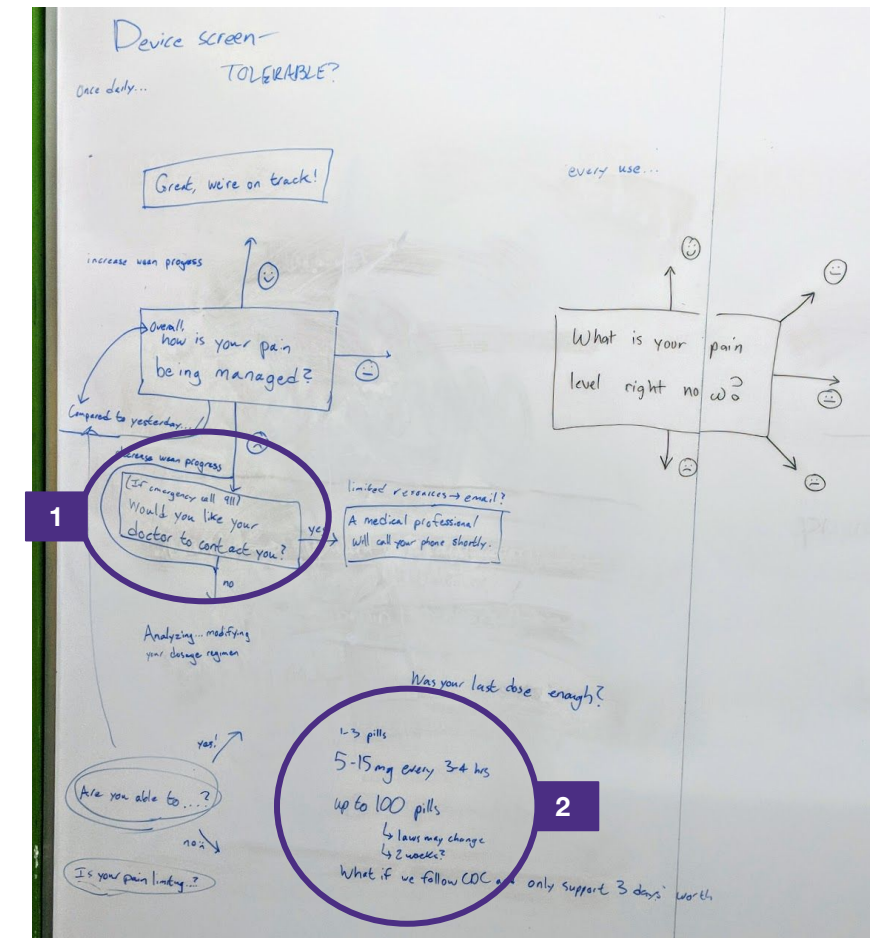 Device screen-
TOLERABLE?
Once daily...
Great, we're on track!
every use...
increase wean progress
Overall,
how is your pain
being managed?
What is your pain
level right now?
Compared to yesterday...
decrease wean progress
(If emergency call 911)
Would you like your
doctor to contact you?
yes
limited resources → email?
A medical professional
will call your phone shortly.
1
no
Analyzing... modifying
your dosage regimen
Was your last dose enough?
1-3 pills
5-15mg every 3-4 hrs
up to 100 pills
↳ laws may change
↳ 2 weeks?
What if we follow CDC and only support 3 days' worth
2
yes!
Are you able to ....?
no :(
Is your pain limiting..?